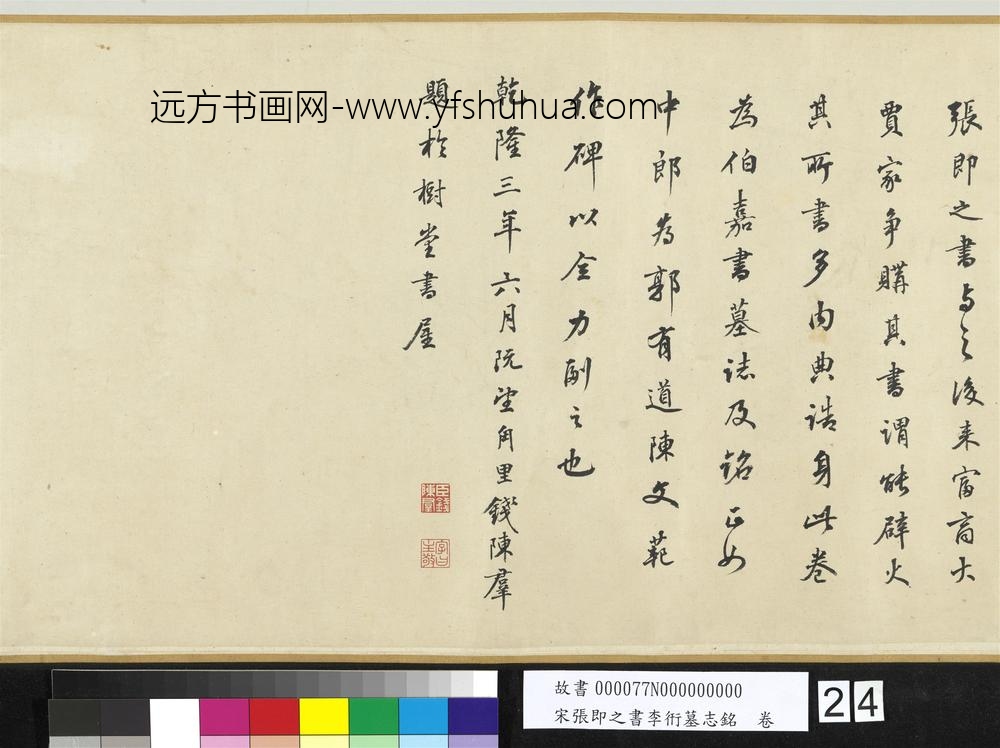 張即之書与之後来富商大
賈家争購其書謂能辟火
其所書多内典誥身此卷
為伯嘉書墓誌及銘正如
中郎為郭有道陳文範
作碑以全力副之也
乾隆三年六月阮望甪里錢陳羣
題於樹堂書屋
臣錢陳羣
远方书画网-www.yfshuhua.com
故書 000077N000000000
宋張即之書李衎墓志銘 卷
24